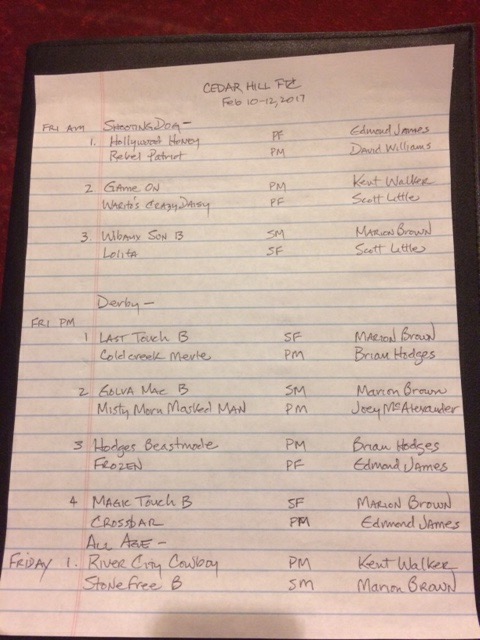 CEDAR HILL FTC
Feb 10-12, 2017
FRI AM Shooting Dog -
1. Hollywood Honey PF Edmond James
Rebel Patriot PM David Williams
2 Game On PM Kent Walker
Warito's Crazy Daisy PF Scott Little
3 Wibaux Son B SM Marion Brown
Lolita SF Scott Little
Derby -
FRI PM
1 LAST Touch B SF Marion Brown
Coldcreek Merle PM Brian Hodges
2 Golva Mac B SM Marion Brown
Misty Morn Masked MAN PM Joey McAlexander
3 Hodges Beastmode PM Brian Hodges
FROZEN PF Edmond James
4 MAGIC Touch B SF Marion Brown
CROSSBAR PM Edmond James
All Age -
FRIDAY 1. River City Cowboy PM Kent Walker
Stonefree B SM Marion Brown